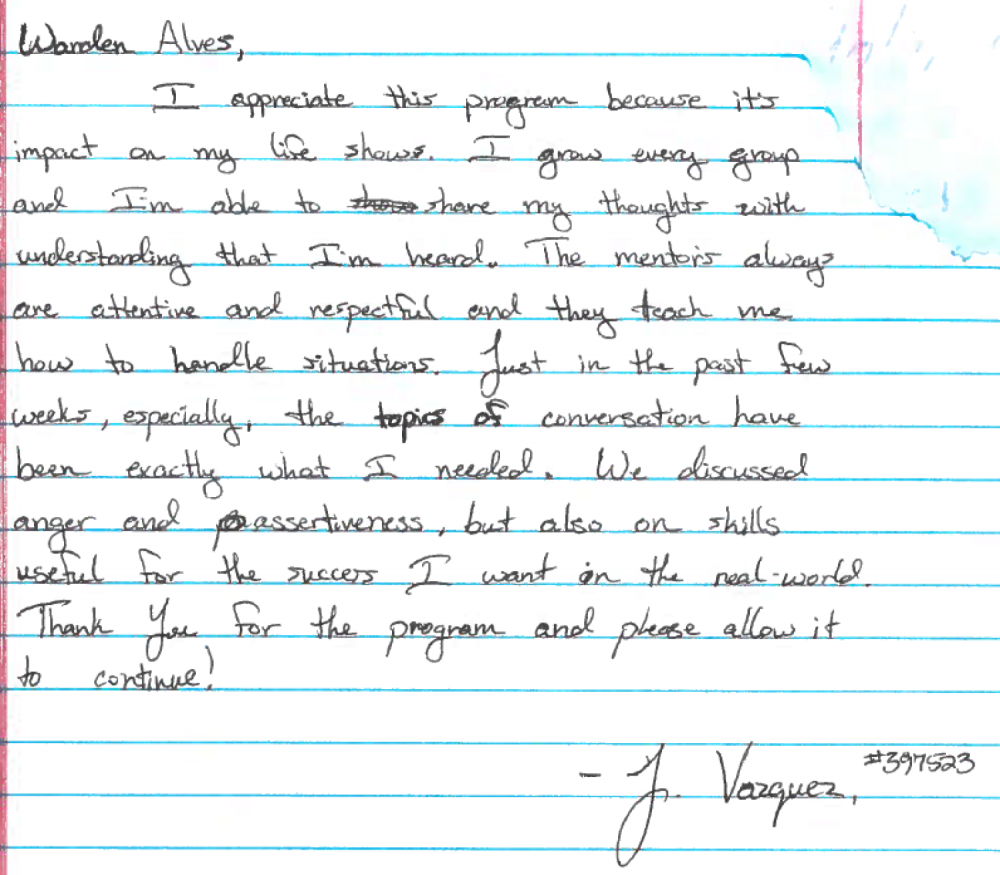 Warden Alves,
I appreciate this program because it's
impact on my life shows. I grow every group
and I'm able to share my thoughts with
understanding that I'm heard. The mentor's always
are attentive and respectful and they teach me
how to handle situations. Just in the past few
weeks, especially, the topics of conversation have
been exactly what I needed. We discussed
anger and assertiveness, but also on skills
useful for the success I want in the real-world.
Thank You for the program and please allow it
to continue!
- J. Vazquez, #397523